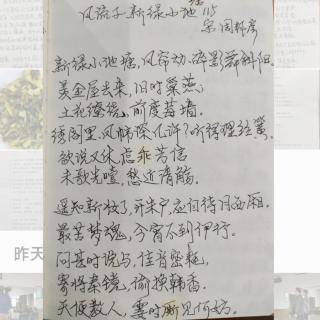 风流子·新绿小池塘 115
宋 周邦彦
新绿小池塘,风帘动、碎影舞斜阳。
羡金屋去来,旧时巢燕,
土花缭绕,前度莓墙。
绣阁里,凤帏深几许?听得理丝簧。
欲说又休,虑乖芳信
未歌先噎,愁近清觞。
遥知新妆了,开朱户,应自待月西厢。
最苦梦魂,今宵不到伊行。
问甚时说与,佳音密耗,
寄将秦镜,偷换韩香。
天便教人,霎时厮见何妨。
昨天